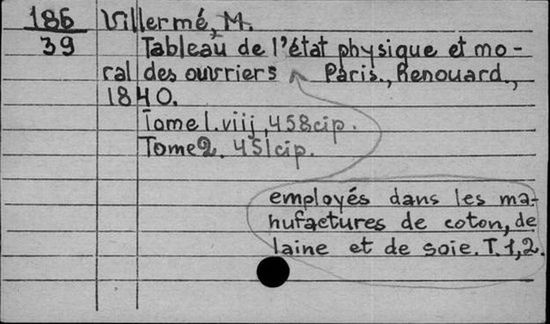 186
39
Villermé, M.
Tableau de l'état physique et mo-
ral des ouvriers Paris., Renouard.,
1840.
Tome 1. viij, 458 cip.
Tome 2. 451 cip.
employés dans les ma-
nufactures de coton, de
laine et de soie. T. 1, 2.